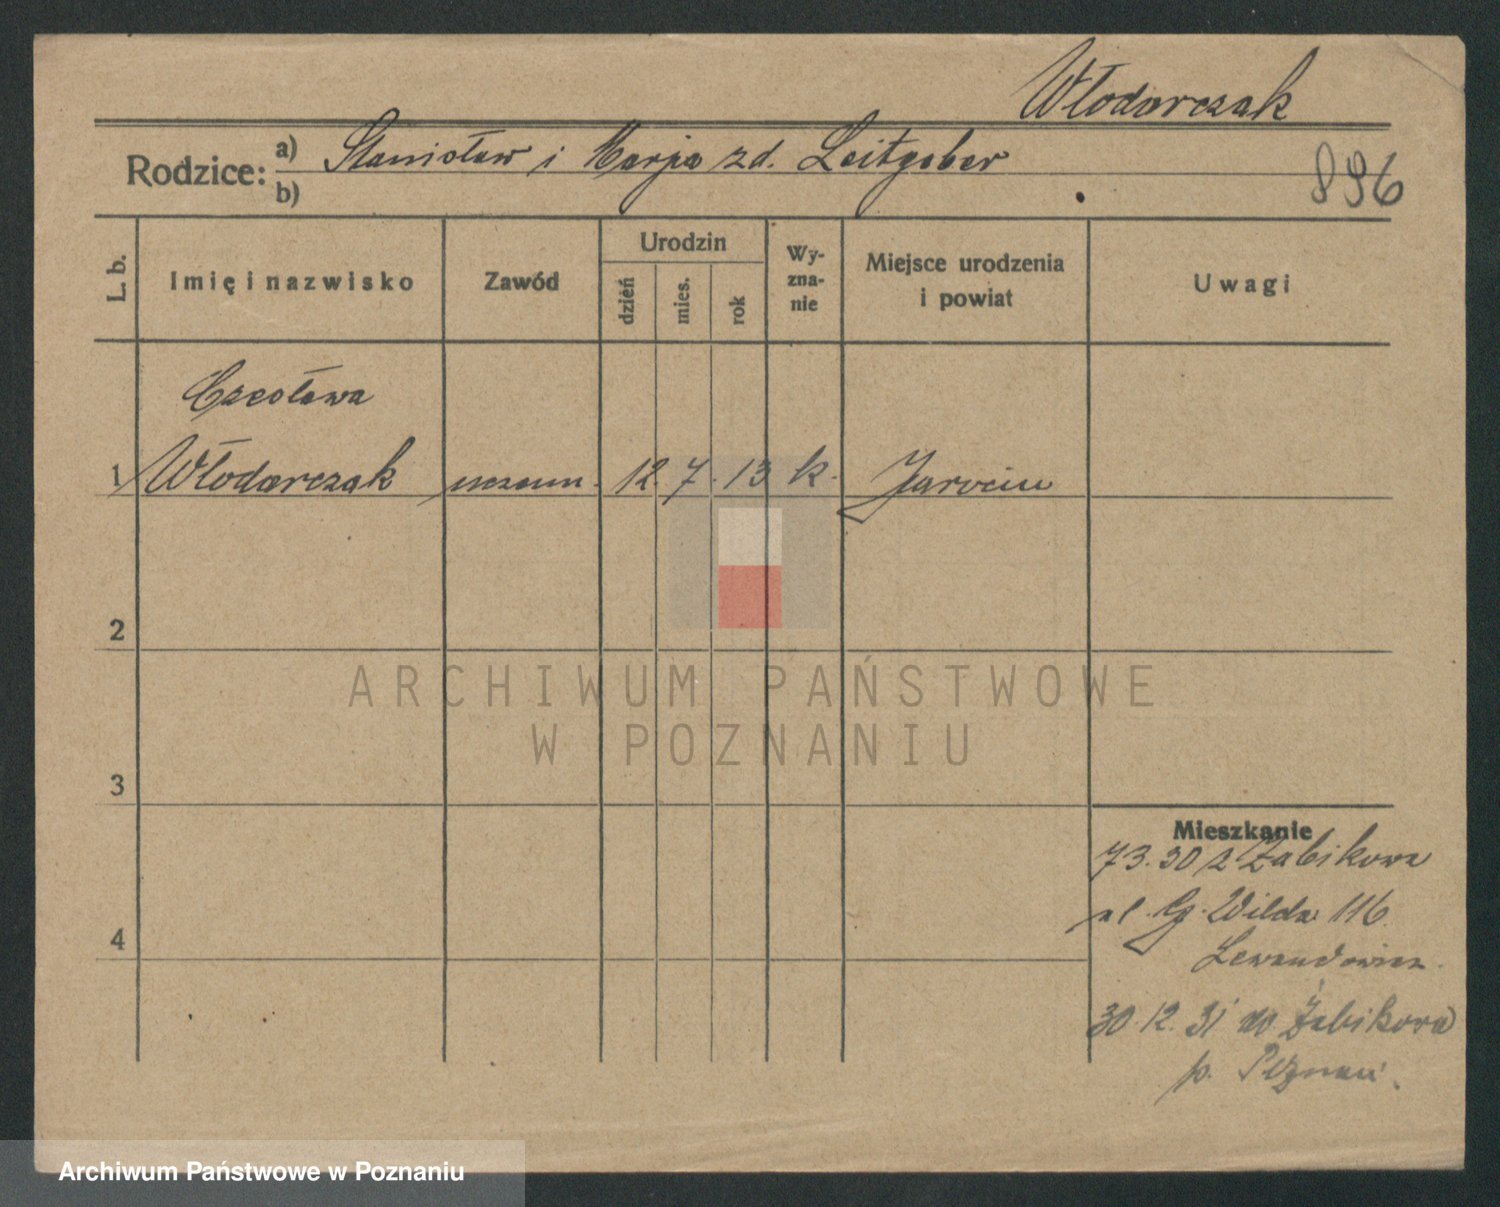 Włodarczak
Rodzice: a) Stanisław i Marja zd. Leitgeber
b)
896
L. b.
Imię i nazwisko
Zawód
Urodzin
dzień
mies.
rok
Wy-
zna-
nie
Miejsce urodzenia
i powiat
Uwagi
Czesława
1 Włodarczak uczenn. 12. 7. 13 k. Jarocin
2
ARCHIWUM PAŃSTWOWE
W POZNANIU
3
Mieszkanie
7 3. 30 z Żabikowa
4
ul. Wilda 116
Lewandowicz
30. 12. 31 w Żabikowa
p. Poznań.
Archiwum Państwowe w Poznaniu